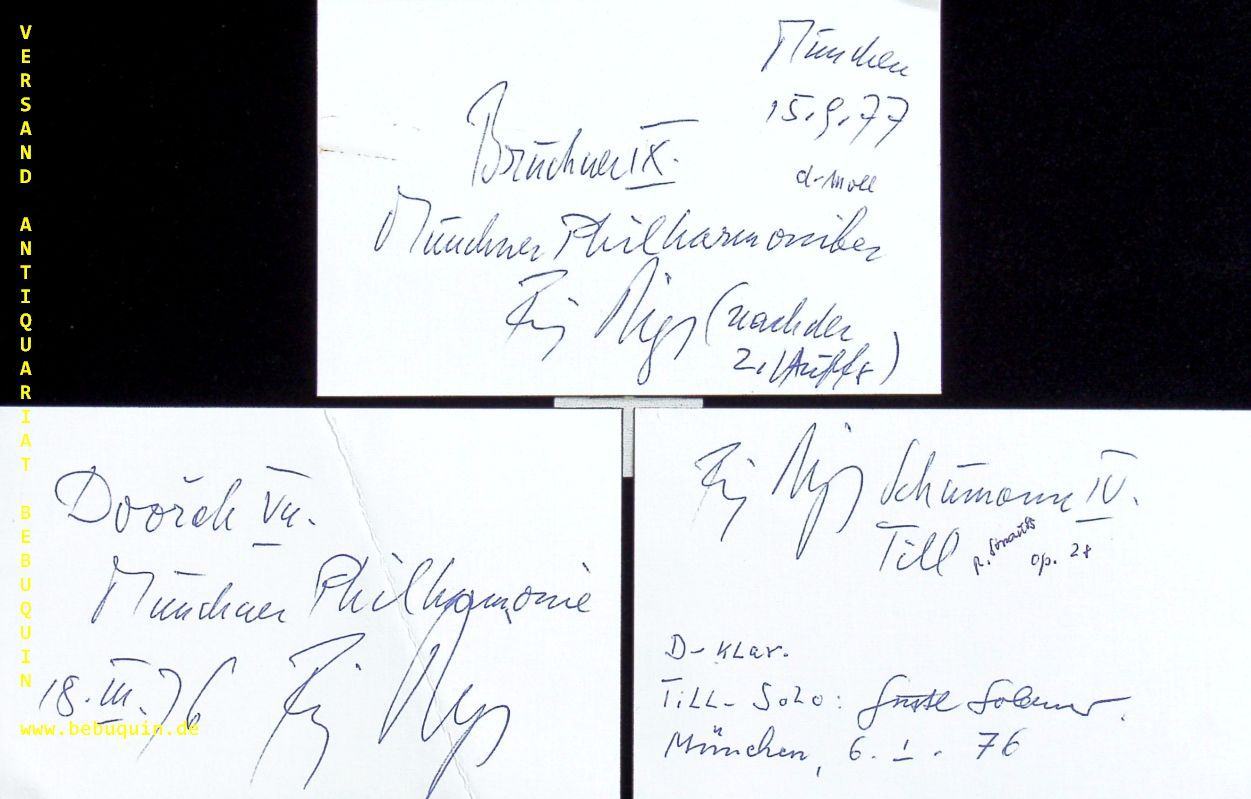 VERSAND ANTIQUARIAT BEBUQUIN
www.bebuquin.de
München
15.9.77
Bruckner IX.
d-moll
Münchner Philharmoniker
(nach der
2.
Dvořák VII.
Münchner Philharmonie
18.III.76
Schumann IV.
Till R. Strauss op. 28
D-Klar.
Till-Solo:
München, 6.I.76